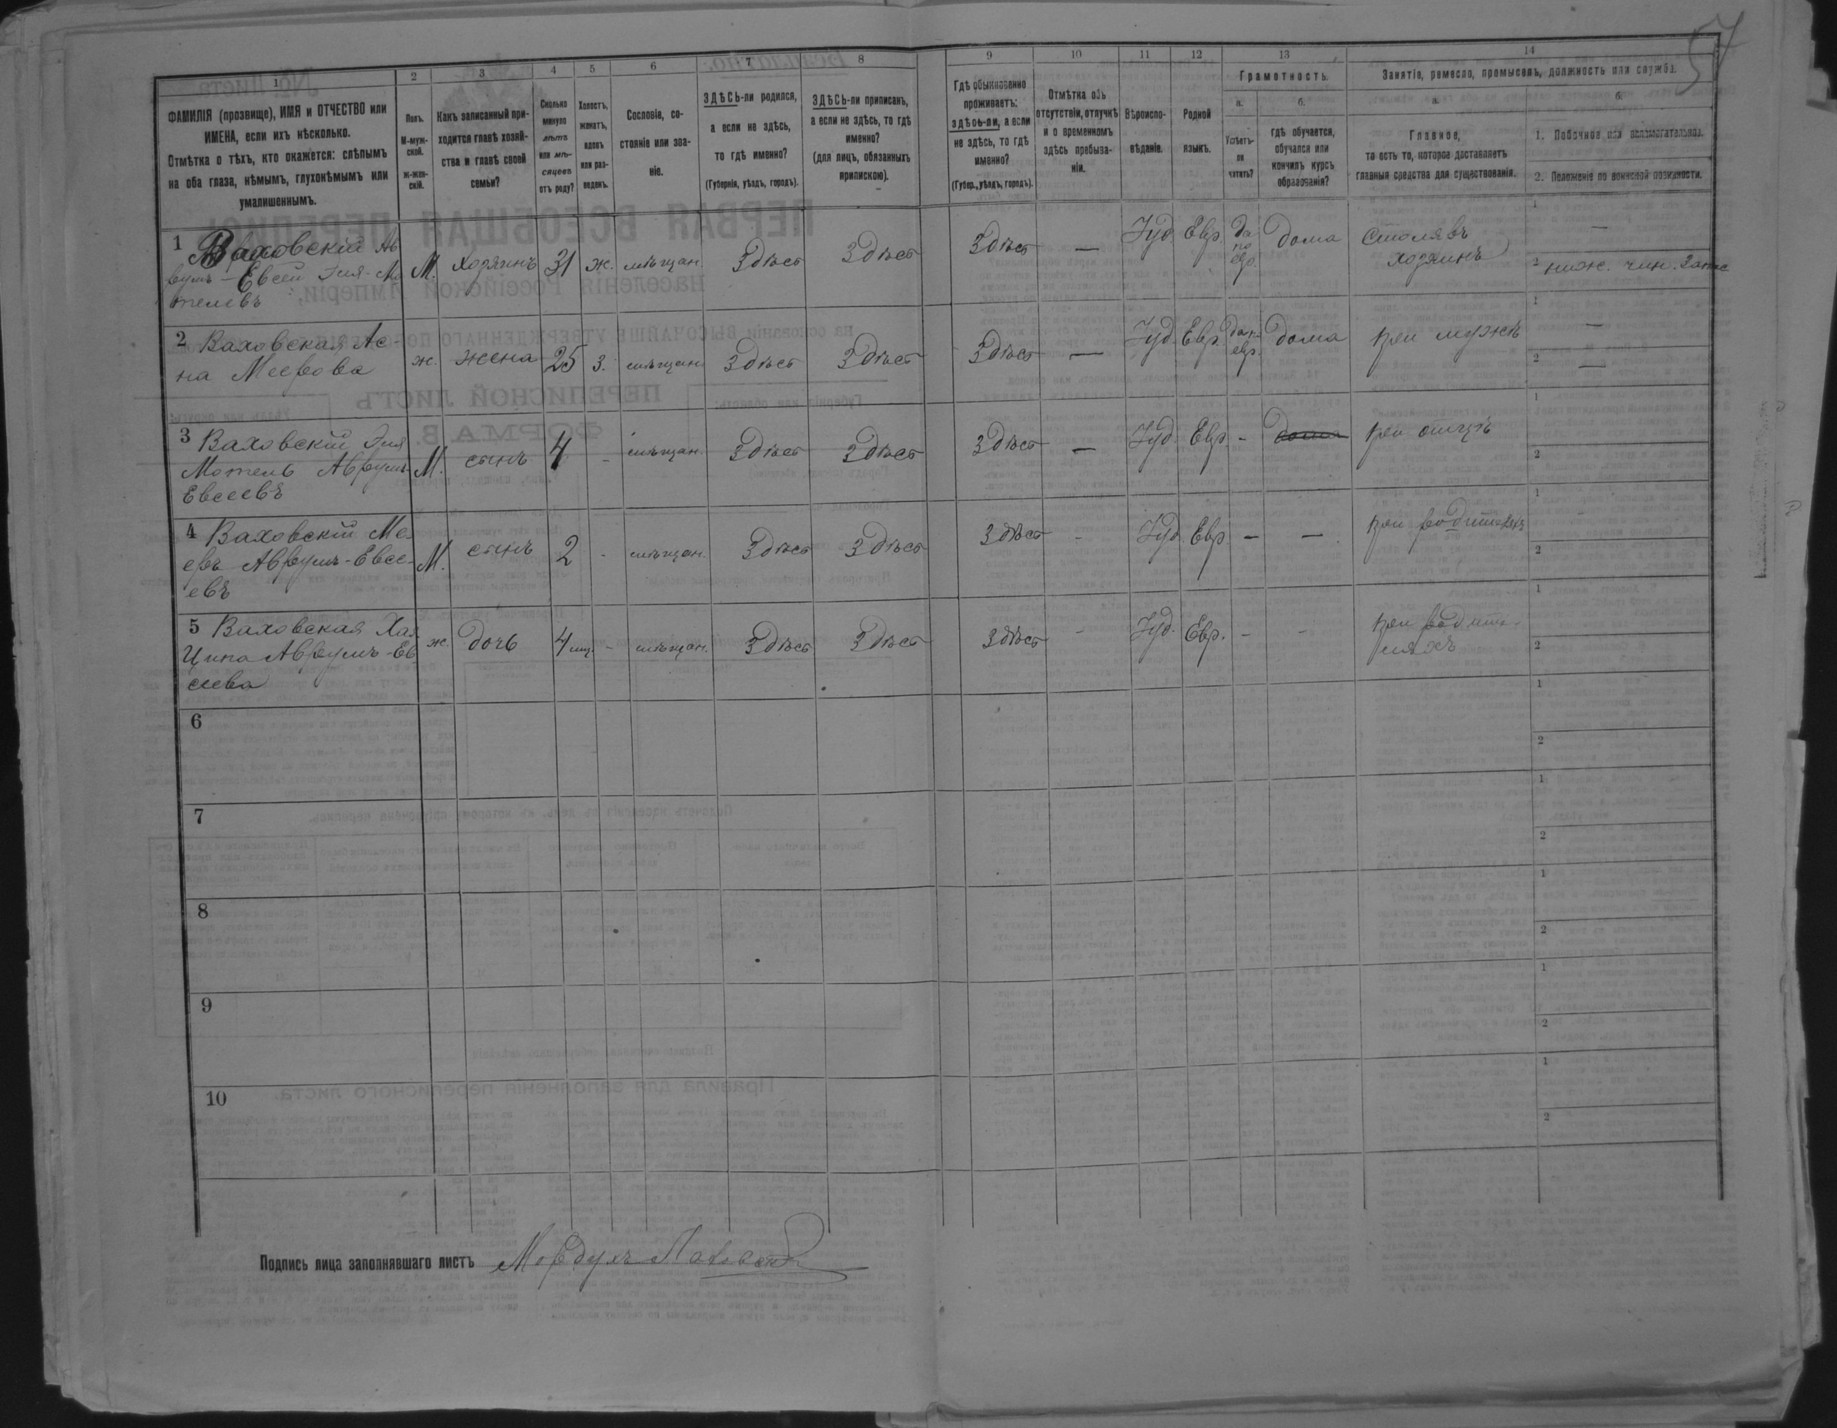 57
1 2 3 4 5 6 7 8 9 10 11 12 13 14
ФАМИЛІЯ (прозвище), ИМЯ и ОТЧЕСТВО или
ИМЕНА, если ихъ нѣсколько.
Отмѣтка о тѣхъ, кто окажется: слѣпымъ
на оба глаза, нѣмымъ, глухонѣмымъ или
умалишеннымъ.
Полъ.
М-муж-
ской.
ж-жен-
скій.
Какъ записанный при-
ходится главѣ хозяй-
ства и главѣ своей
семьи?
Сколько
минуло
лѣтъ
или мѣ-
сяцевъ
отъ роду?
Холостъ,
женатъ,
вдовъ
или раз-
веденъ.
Сословіе, со-
стояніе или зва-
ніе.
ЗДѢСЬ-ли родился,
а если не здѣсь,
то гдѣ именно?
(Губернія, уѣздъ, городъ).
ЗДѢСЬ-ли приписанъ,
а если не здѣсь, то гдѣ
именно?
(для лицъ, обязанныхъ
припискою).
Гдѣ обыкновенно
проживаетъ:
здѣсь-ли, а если
не здѣсь, то гдѣ
именно?
(Губер., уѣздъ, городъ).
Отмѣтка объ
отсутствіи, отлучкѣ
и о временномъ
здѣсь пребыва-
ніи.
Вѣроиспо-
вѣданіе.
Родной
языкъ.
Грамотность.
а.
Умѣетъ-
ли
читать?
б.
гдѣ обучается,
обучался или
кончилъ курсъ
образованія?
Занятіе, ремесло, промыселъ, должность или служба.
а.
Главное,
то есть то, которое доставляетъ
главныя средства для существованія.
б.
1. Побочное или вспомогательное.
2. Положеніе по воинской повинности.
1 Ваховскій Ав
румъ-Евсей Эля-Мо
телевъ
М. хозяинъ 31 ж. мѣщан. Здѣсь Здѣсь Здѣсь — Іуд. Евр. да по евр. дома Столяръ хозяинъ
1 —
2 ниж. чин. запас
2 Ваховская Ас-
на Меерова
ж. жена 25 з. мѣщан. Здѣсь Здѣсь Здѣсь — Іуд. Евр. да п. евр. дома при мужѣ
1 —
2 —
3 Ваховскій Эля
Мотель Аврумъ-
Евсеевъ
М. сынъ 4 - мѣщан. Здѣсь Здѣсь Здѣсь — Іуд. Евр. - дома при отцѣ
1
2
4 Ваховскій Ме-
еръ Аврумъ-Евсе-
евъ
М. сынъ 2 - мѣщан. Здѣсь Здѣсь Здѣсь - Іуд. Евр. — — при родителяхъ
1 -
2
5 Ваховская Хая
Ципа Аврумъ-Ев
сеева
ж. дочь 4 мц. - мѣщан. Здѣсь Здѣсь Здѣсь - Іуд. Евр. - - при родите-
ляхъ
1
2
6
1
2
7
1
2
8
1
2
9
1
2
10
1
2
Подпись лица заполнявшаго листъ Мордухъ